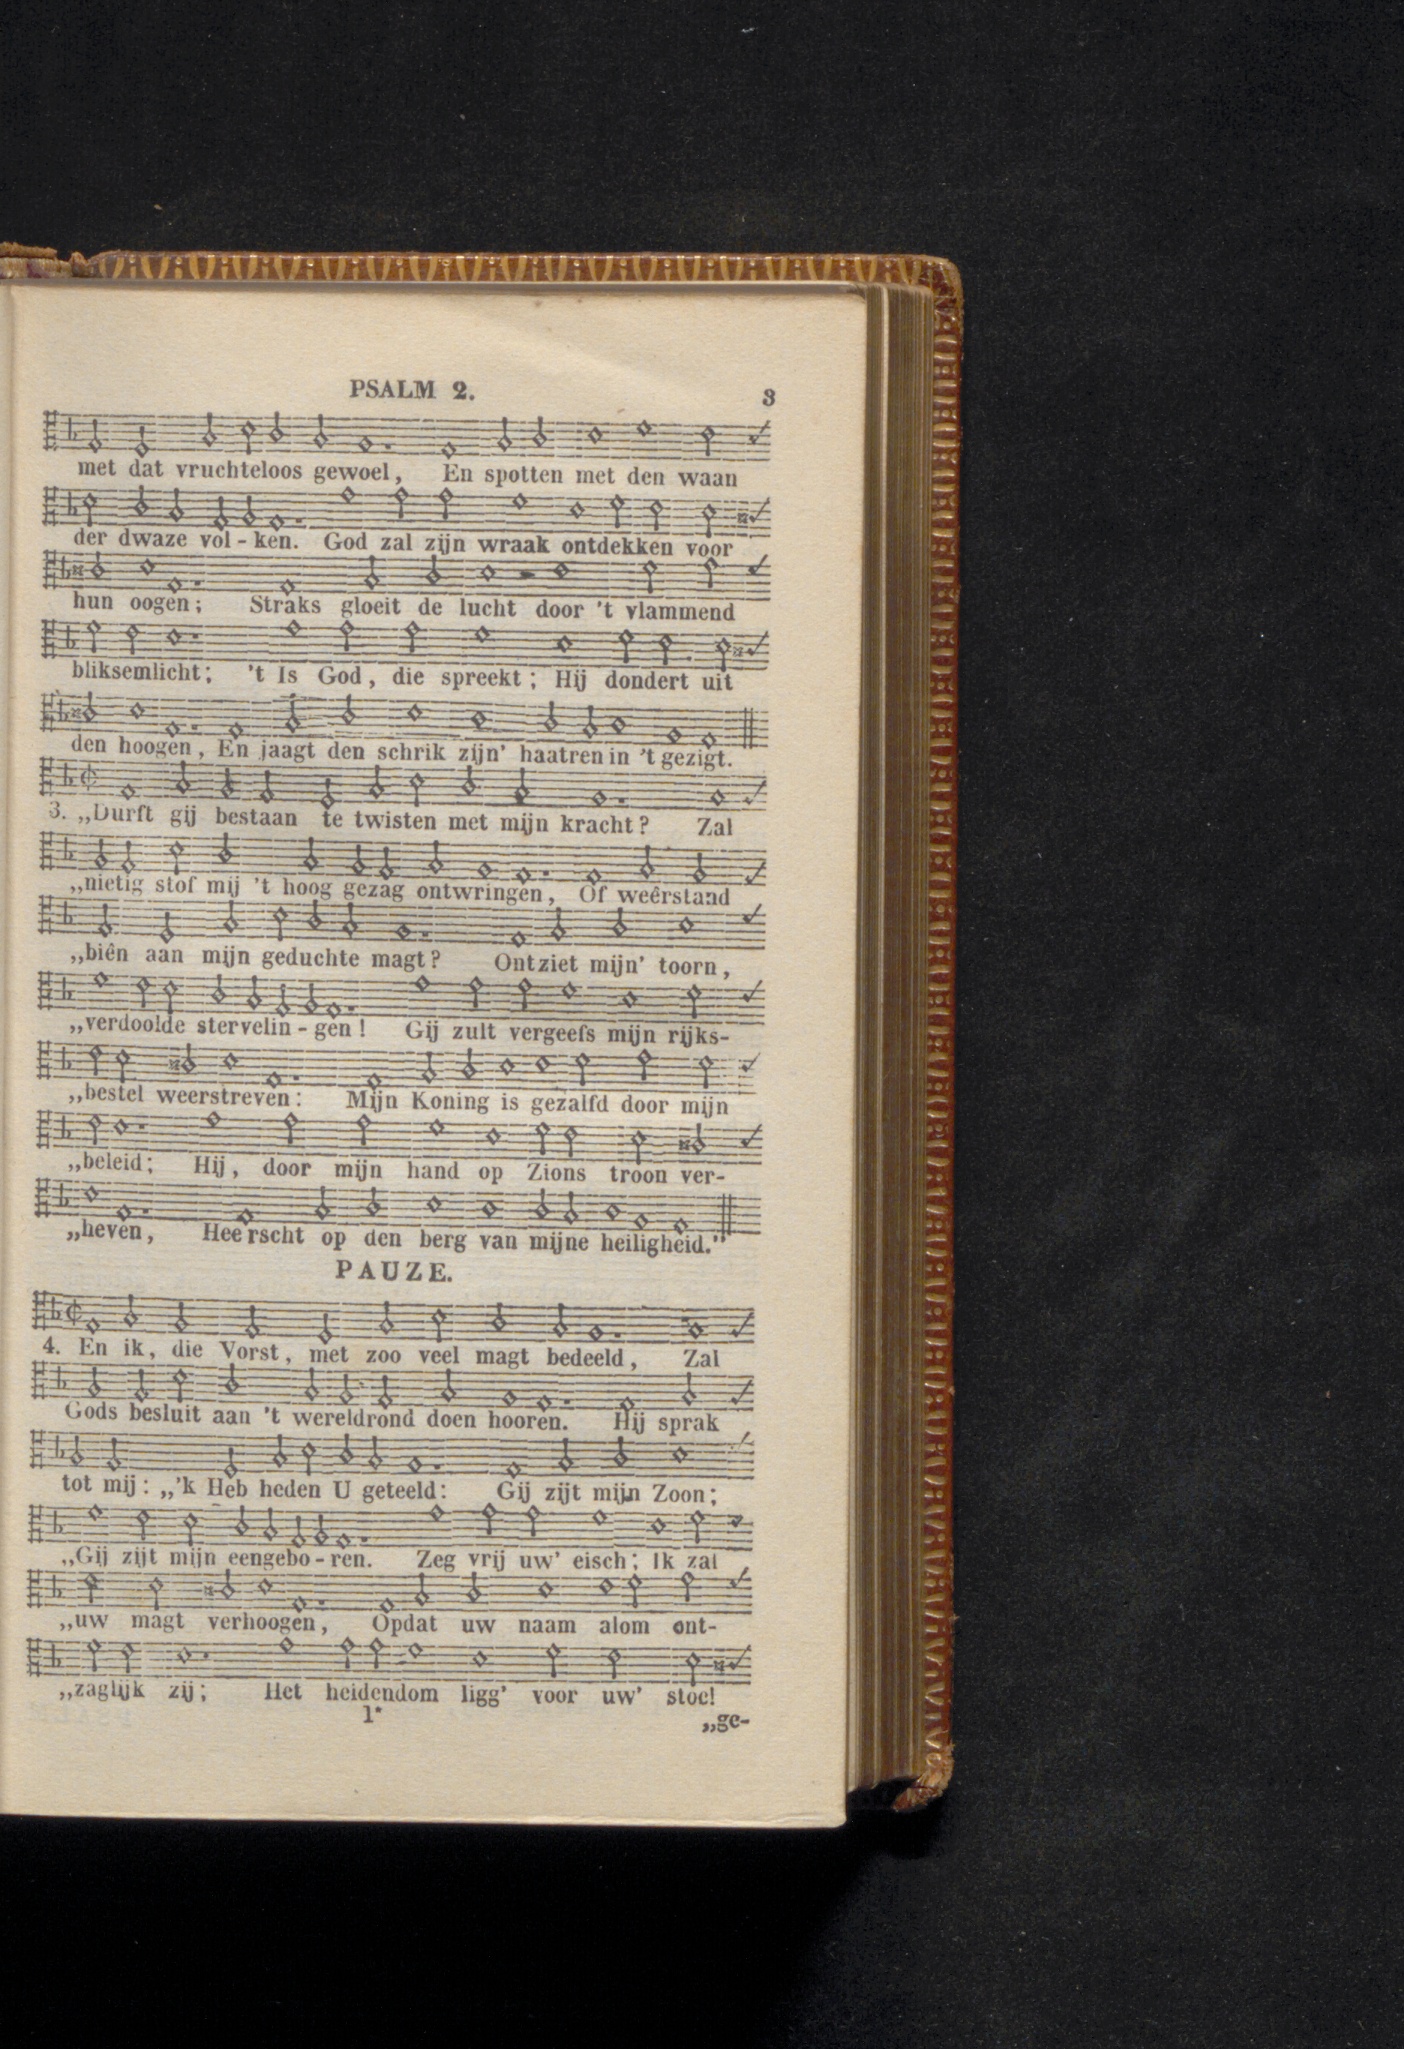 PSALM 2. 3
met dat vruchteloos gewoel, En spotten met den waan
der dwaze vol-ken. God zal zijn wraak ontdekken voor
hun oogen; Straks gloeit de lucht door 't vlammend
bliksemlicht; 't Is God, die spreekt; Hij dondert uit
den hoogen, En jaagt den schrik zijn' haatren in 't gezigt.
3. „Durft gij bestaan te twisten met mijn kracht? Zal
„nietig stof mij 't hoog gezag ontwringen, Of weêrstand
„biên aan mijn geduchte magt? Ontziet mijn' toorn,
„verdoolde stervelin-gen! Gij zult vergeefs mijn rijks-
„bestel weerstreven: Mijn Koning is gezalfd door mijn
„beleid; Hij, door mijn hand op Zions troon ver-
„heven, Heerscht op den berg van mijne heiligheid."
PAUZE.
4. En ik, die Vorst, met zoo veel magt bedeeld, Zal
Gods besluit aan 't wereldrond doen hooren. Hij sprak
tot mij: „'k Heb heden U geteeld: Gij zijt mijn Zoon;
„Gij zijt mijn eengebo-ren. Zeg vrij uw' eisch; Ik zal
„uw magt verhoogen, Opdat uw naam alom ont-
„zaglijk zij; Het heidendom ligg' voor uw' stoel
1* „ge-